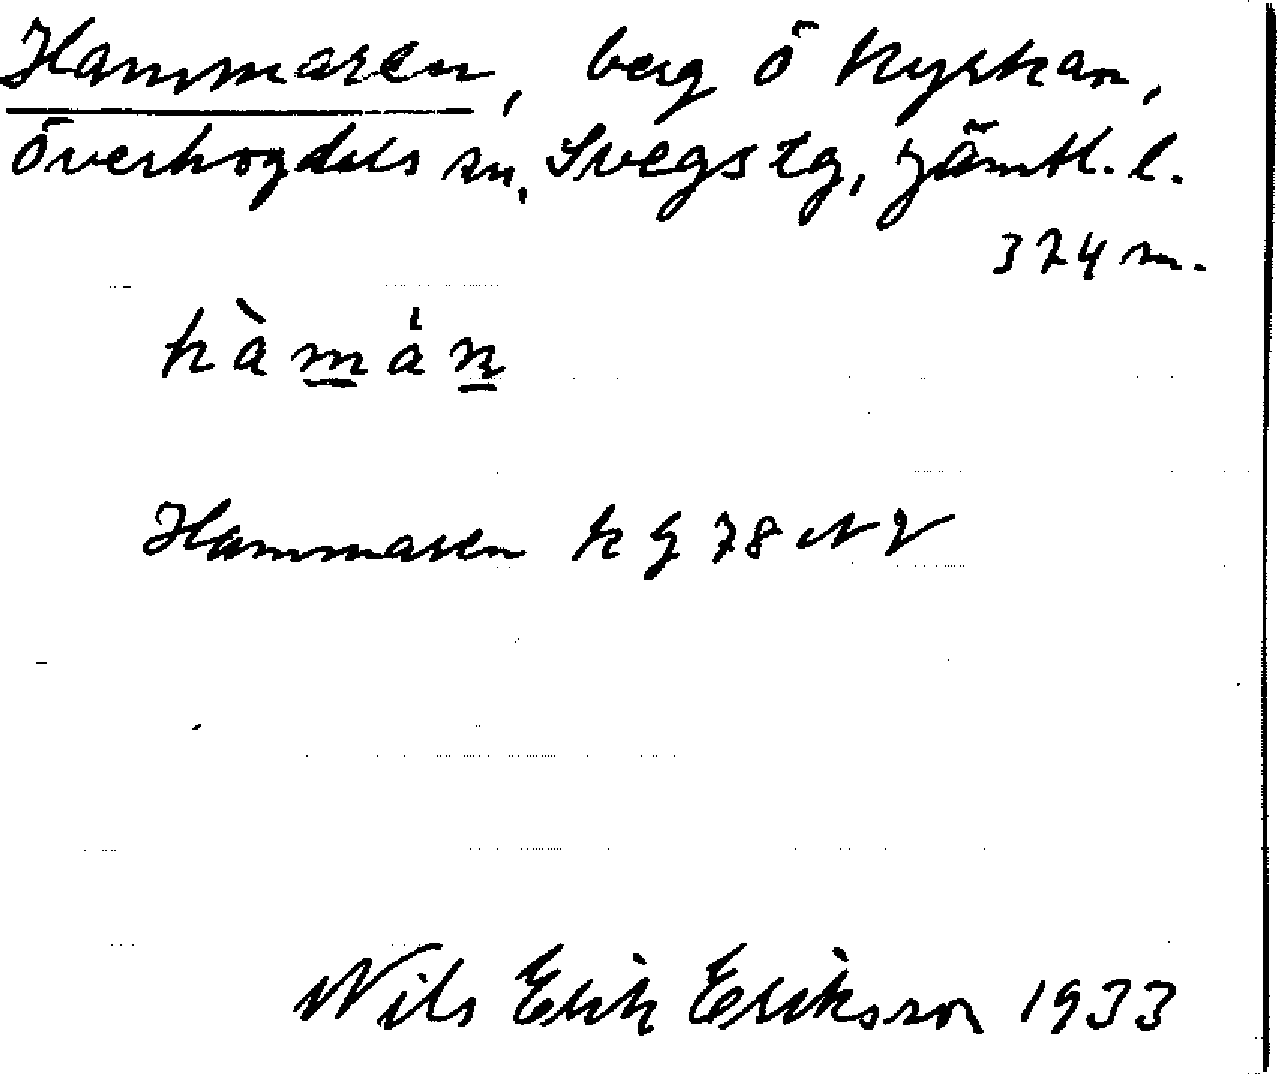 Hammaren, berg ö kyrkan,
Överhogdals sn, Svegs tg, Jämtl. l.
324 m.
hàmán
Hammaren k g 78 NV
Nils Erik Eriksson 1933